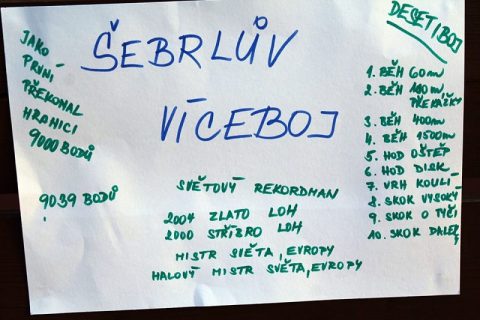 ŠEBRLŮV
VÍCEBOJ
JAKO
PRVNÍ
PŘEKONAL
HRANICI
9000 BODŮ
9039 BODŮ
SVĚTOVÝ REKORDMAN
2004 ZLATO LOH
2000 STŘÍBRO LOH
MISTR SVĚTA, EVROPY
HALOVÝ MISTR SVĚTA, EVROPY
DESETIBOJ
1. BĚH 60m
2. BĚH 110m
PŘEKÁŽKY
3. BĚH 400m
4. BĚH 1500m
5. HOD OŠTĚP
6. HOD DISK
7. VRH KOULÍ
8. SKOK VYSOKÝ
9. SKOK O TYČI
10. SKOK DALEKÝ